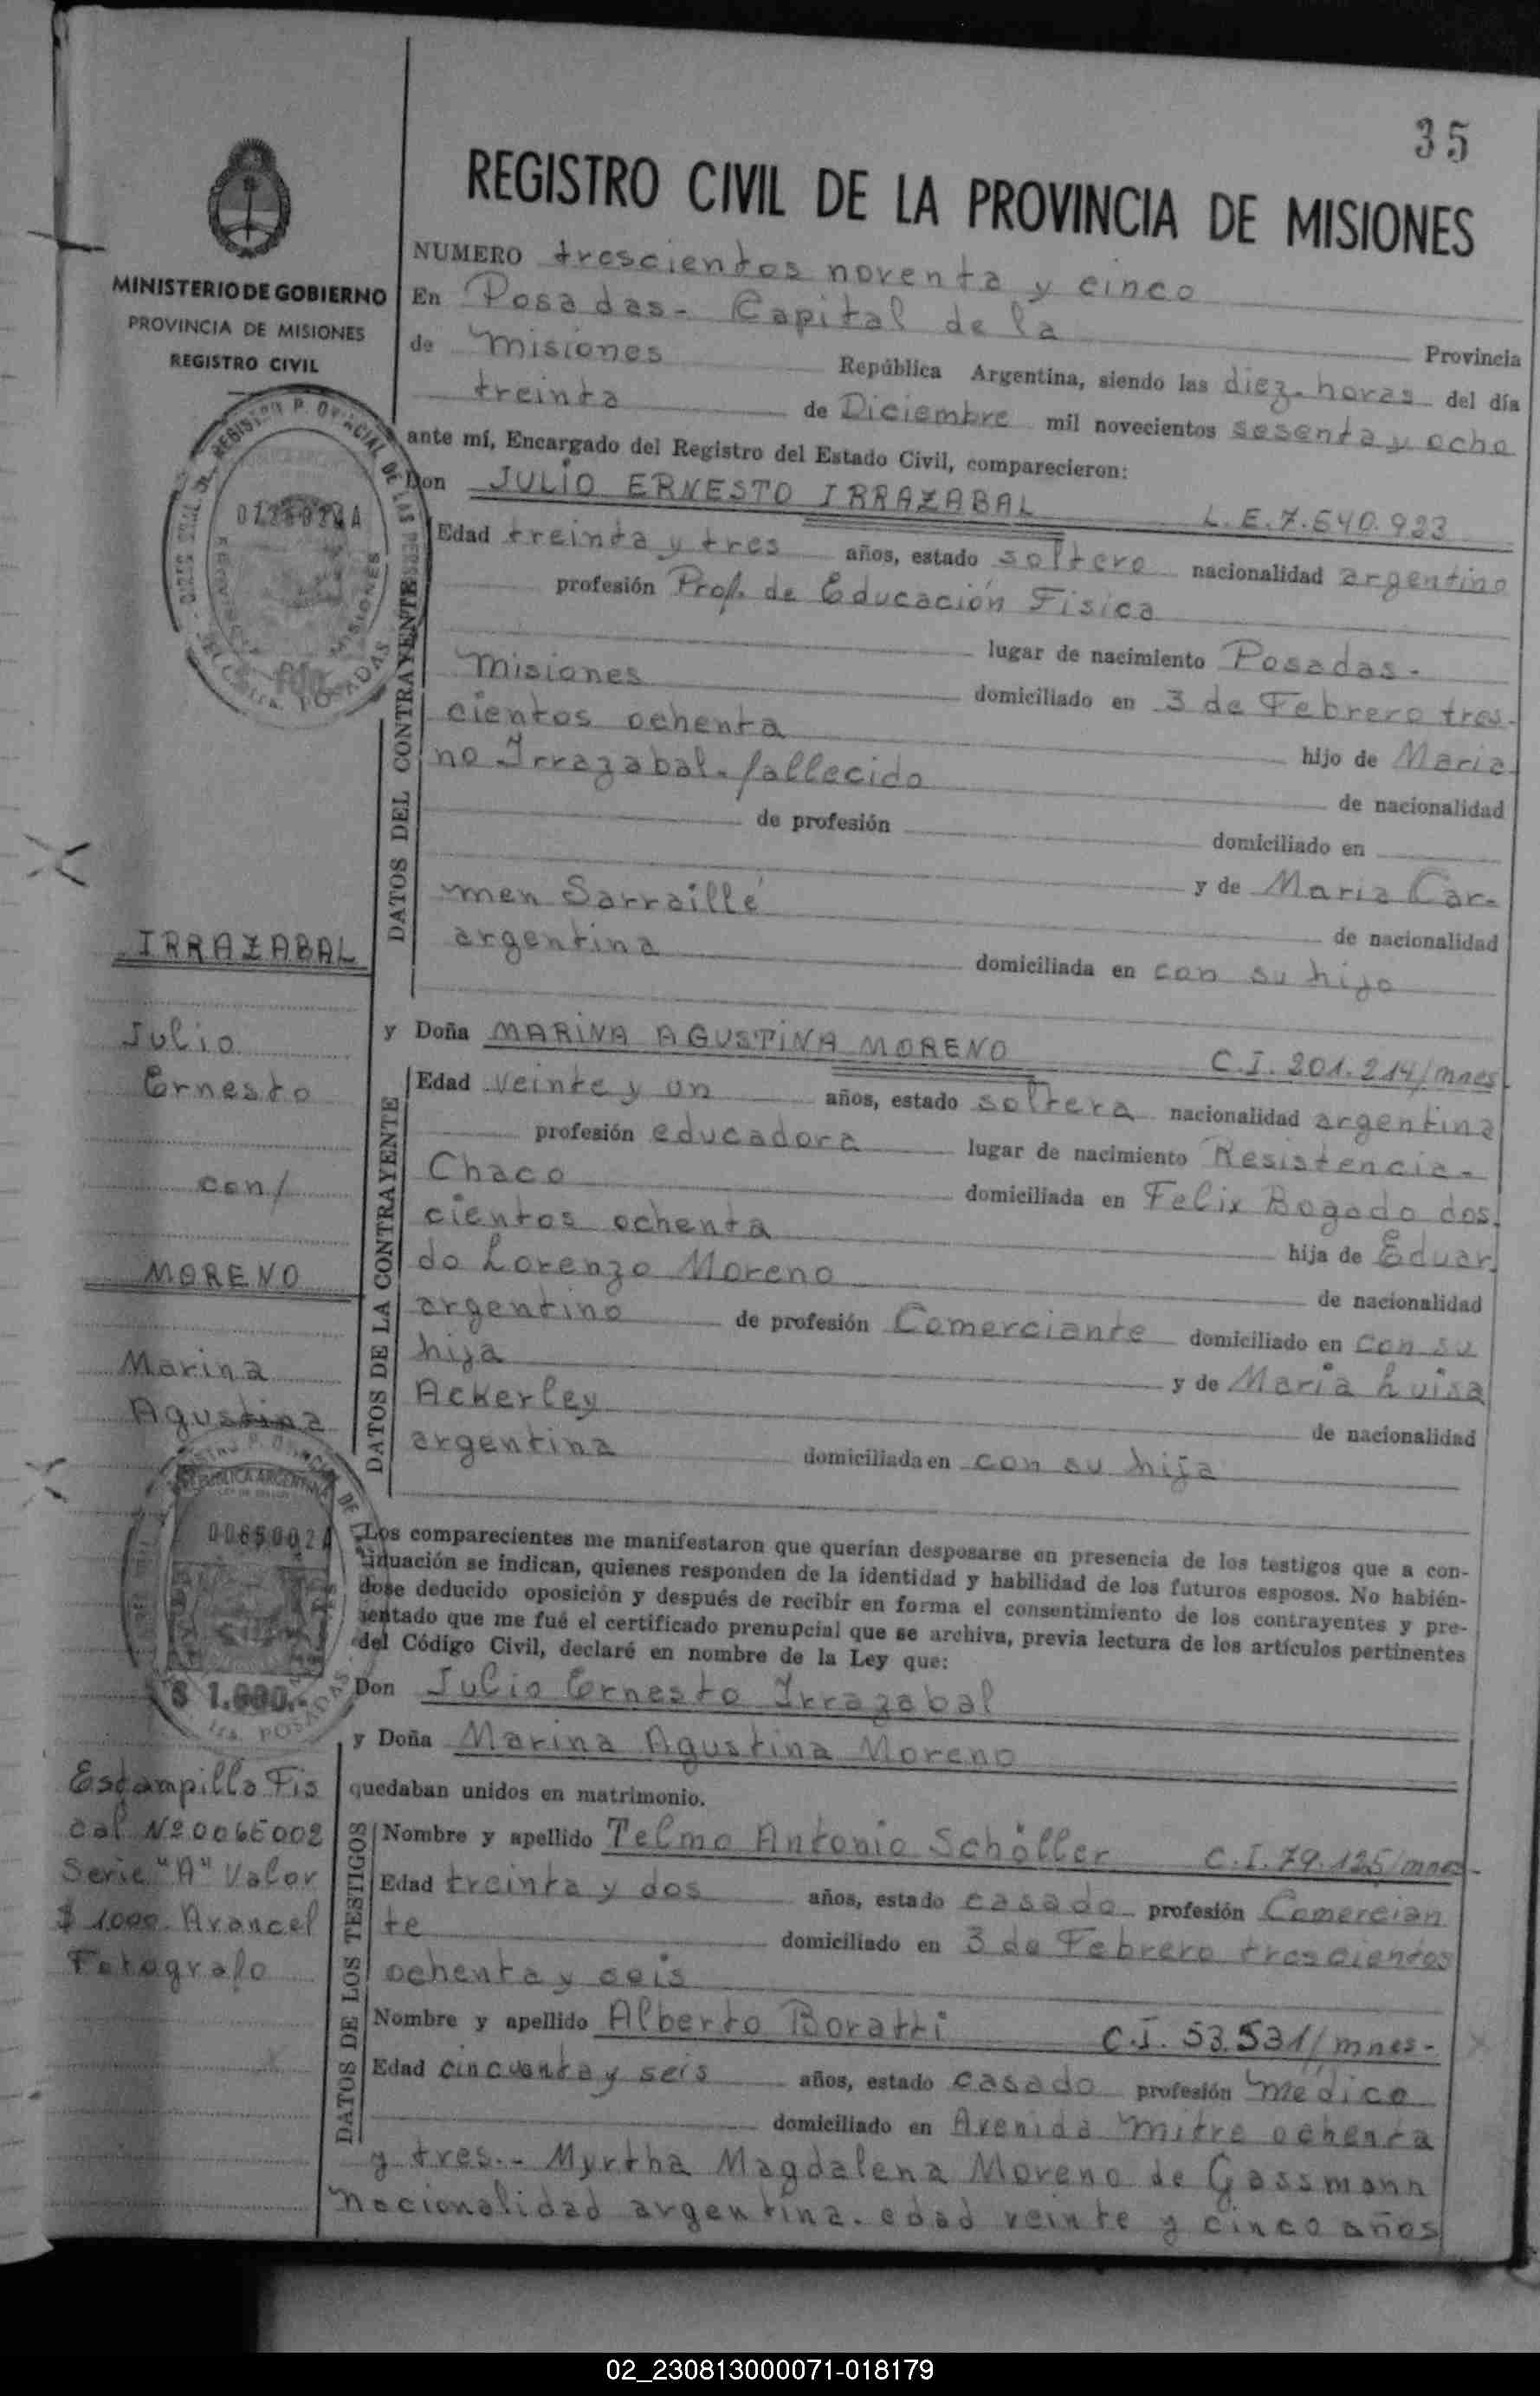 35
REGISTRO CIVIL DE LA PROVINCIA DE MISIONES
MINISTERIO DE GOBIERNO
PROVINCIA DE MISIONES
REGISTRO CIVIL
NUMERO trescientos noventa y cinco
En Posadas - Capital de la Provincia
de Misiones República Argentina, siendo las diez horas del día
treinta de Diciembre mil novecientos sesenta y ocho
ante mí, Encargado del Registro del Estado Civil, comparecieron:
Don JULIO ERNESTO IRRAZABAL L.E.7.540.923
DATOS DEL CONTRAYENTE
Edad treinta y tres años, estado soltero nacionalidad argentino
profesión Prof. de Educación Fisica
lugar de nacimiento Posadas -
Misiones domiciliado en 3 de Febrero tres-
cientos ochenta hijo de Maria-
no Irrazabal - fallecido de nacionalidad
de profesión domiciliado en
y de Maria Car-
men Sarraillé de nacionalidad
argentina domiciliada en con su hijo
IRRAZABAL
Julio
Ernesto
con/
MORENO
Marina
Agustina
y Doña MARINA AGUSTINA MORENO C.I. 201.214/mnes.
DATOS DE LA CONTRAYENTE
Edad veinte y un años, estado soltera nacionalidad argentina
profesión educadora lugar de nacimiento Resistencia -
Chaco domiciliada en Felix Bogado dos.
cientos ochenta hija de Eduar.
do Lorenzo Moreno de nacionalidad
argentino de profesión Comerciante domiciliado en con su
hija y de Maria Luisa
Ackerley de nacionalidad
argentina domiciliada en con su hija
Los comparecientes me manifestaron que querían desposarse en presencia de los testigos que a con-
tinuación se indican, quienes responden de la identidad y habilidad de los futuros esposos. No habién-
dose deducido oposición y después de recibir en forma el consentimiento de los contrayentes y pre-
sentado que me fué el certificado prenupcial que se archiva, previa lectura de los artículos pertinentes
del Código Civil, declaré en nombre de la Ley que:
$ 1.000.-
Don Julio Ernesto Irrazabal
y Doña Marina Agustina Moreno
quedaban unidos en matrimonio.
Estampilla Fis
cal Nº 0065002
Serie "A" Valor
$ 1000 Arancel
Fotografo
DATOS DE LOS TESTIGOS
Nombre y apellido Telmo Antonio Schöller C.I. 79.125/mnes-
Edad treinta y dos años, estado casado profesión Comercian
te domiciliado en 3 de Febrero trescientos
ochenta y seis
Nombre y apellido Alberto Boratti C.I. 53.531/mnes-
Edad cincuenta y seis años, estado casado profesión Medico
domiciliado en Avenida Mitre ochenta
y tres.- Myrtha Magdalena Moreno de Gassmann
nacionalidad argentina. edad veinte y cinco años
02_230813000071-018179